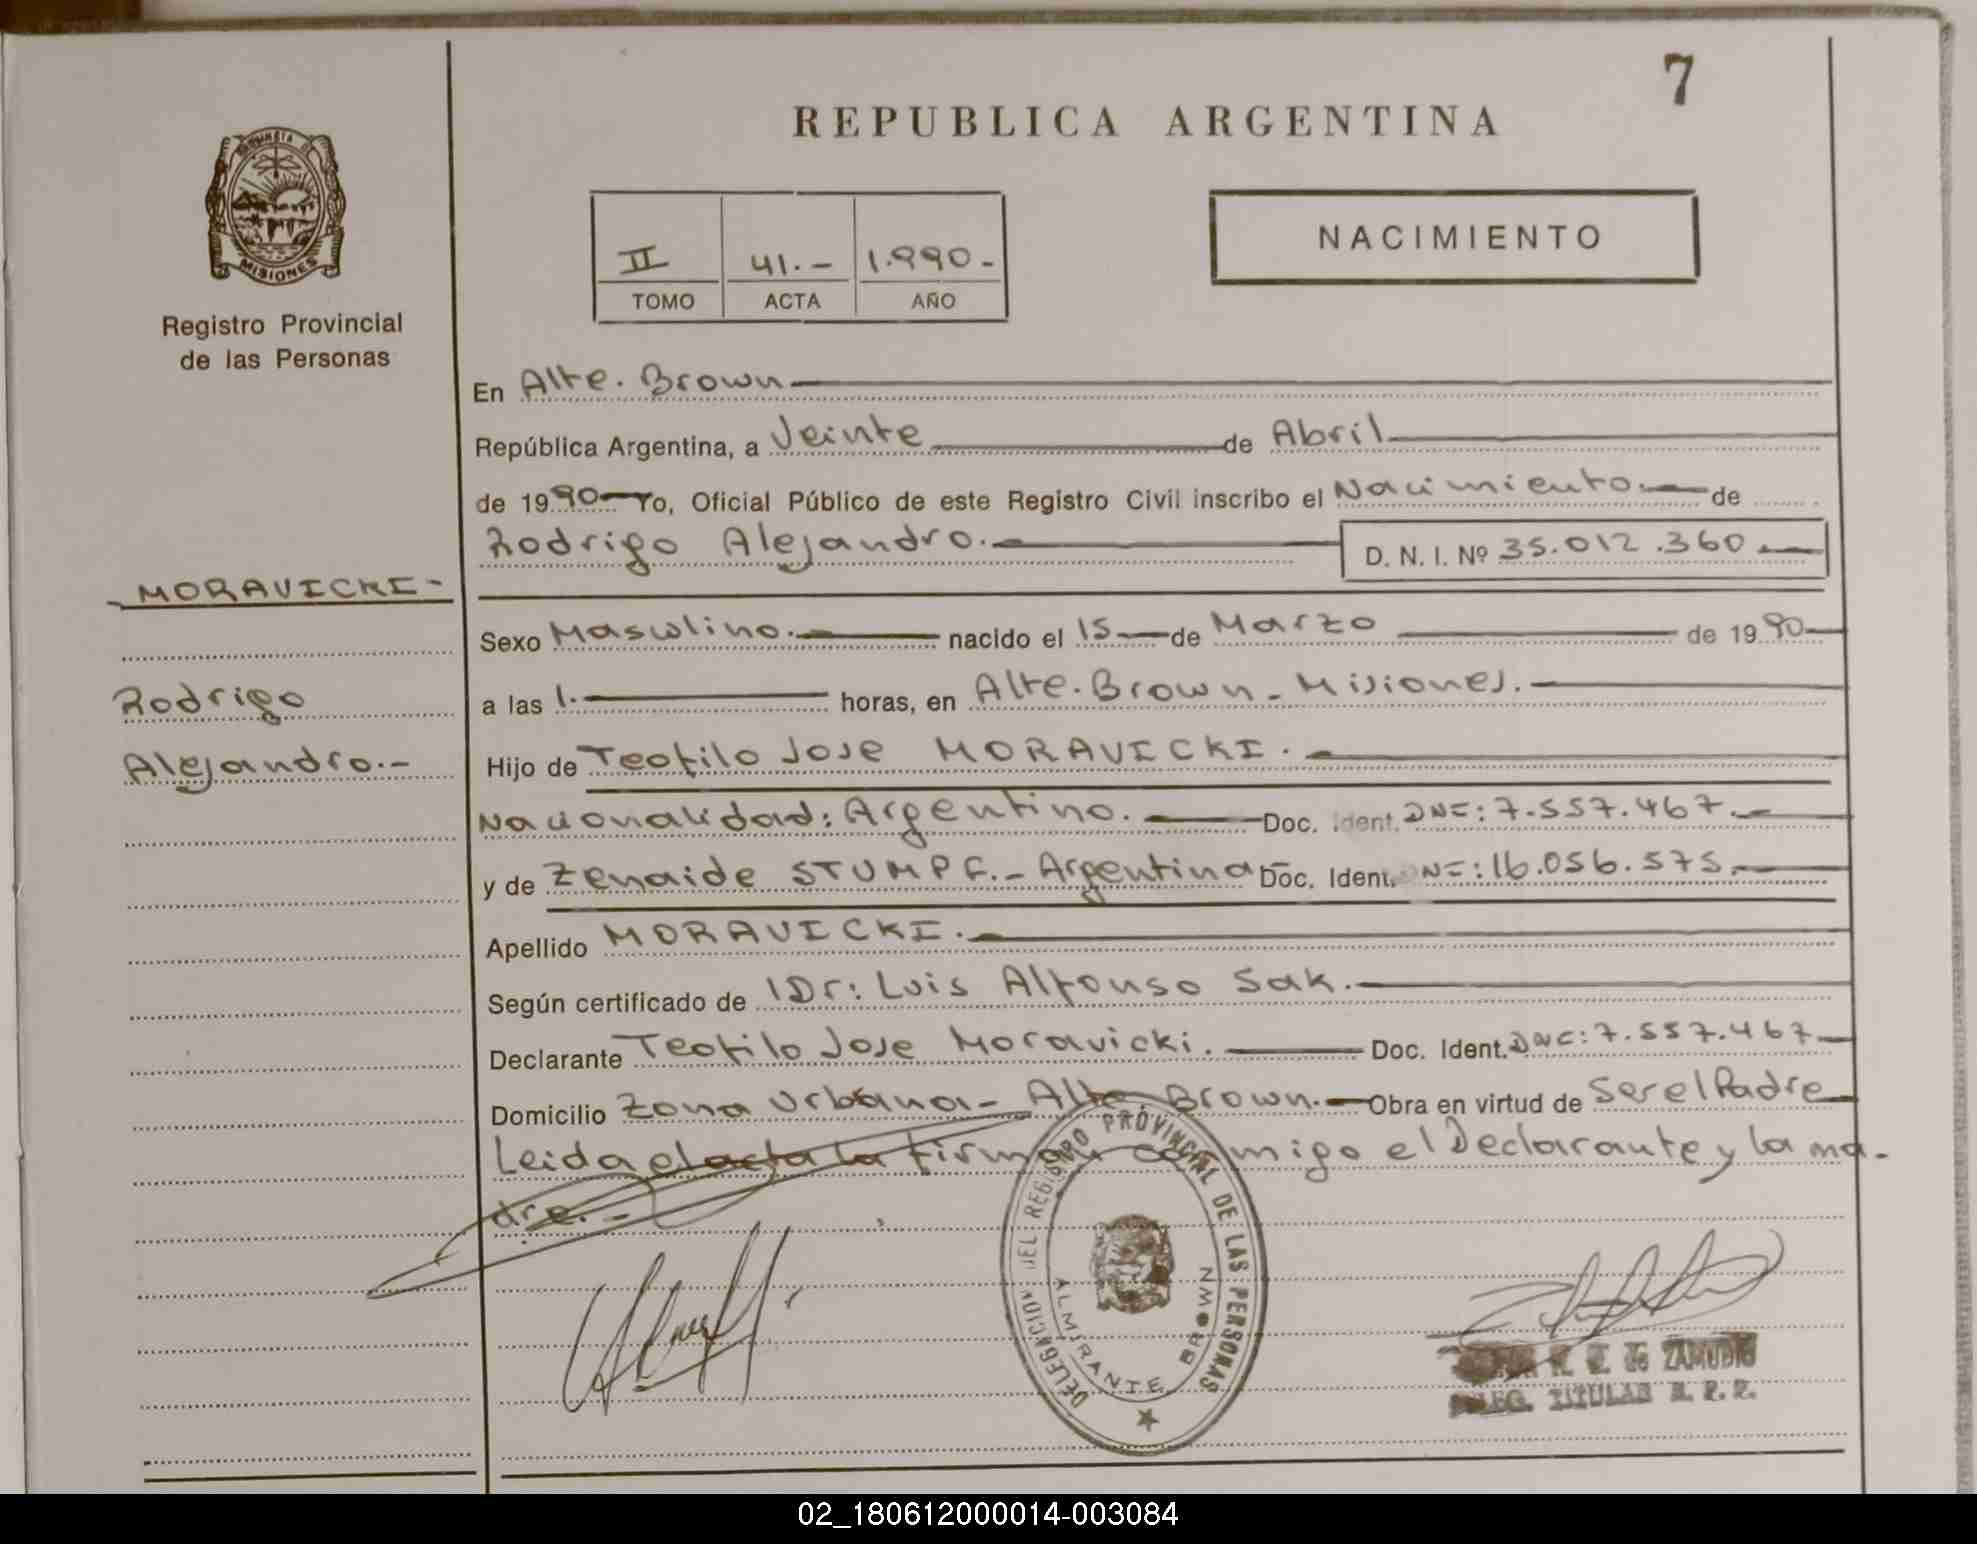 7
REPUBLICA ARGENTINA
MISIONES
Registro Provincial
de las Personas
II 41.- 1.990-
TOMO ACTA AÑO
NACIMIENTO
En Alte. Brown
República Argentina, a Veinte de Abril
de 1990 Yo, Oficial Público de este Registro Civil inscribo el Nacimiento. de
Rodrigo Alejandro. D. N. I. Nº 35.012.360
MORAVICKI-
Sexo Masculino. nacido el 15 de Marzo de 1990
Rodrigo
a las 1. horas, en Alte. Brown - Misiones.
Alejandro.-
Hijo de Teofilo Jose MORAVICKI.
Nacionalidad: Argentino. Doc. Ident. DNI: 7.557.467.
y de Zenaide STUMPF.- Argentina Doc. Ident. DNI: 16.056.575.
Apellido MORAVICKI.
Según certificado de Dr: Luis Alfonso Sak.
Declarante Teofilo Jose Moravicki. Doc. Ident. DNI: 7.557.467
Domicilio Zona Urbana - Alte Brown. Obra en virtud de Ser el Padre
Leida el acta la firman conmigo el Declarante y la ma-
dre.-
DELEGACION DEL REGISTRO PROVINCIAL DE LAS PERSONAS
ALMIRANTE BROWN
de ZAMUDIO
DELEG. TITULAR R. P. P.
02_180612000014-003084